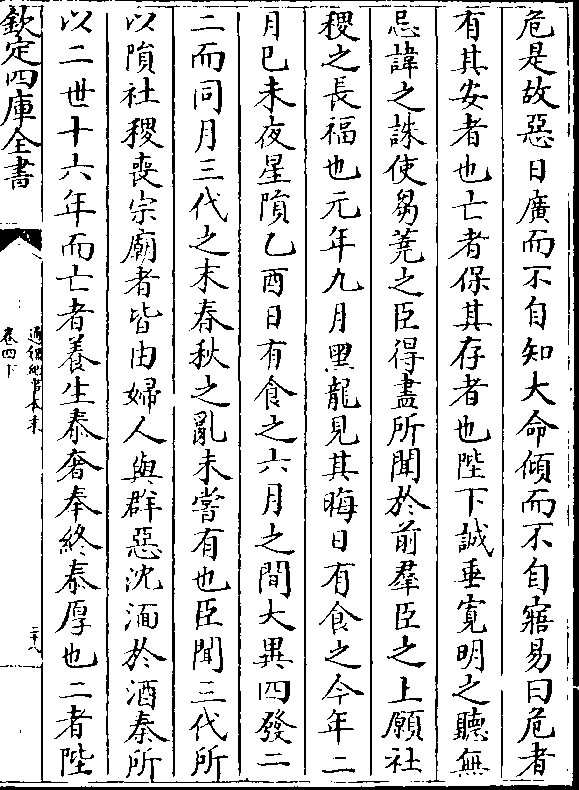 危是故惡日廣而不自知大命傾而不自寤易曰危者
有其安者也亡者保其存者也陛下誠垂寛明之聽無
忌諱之誅使芻蕘之臣得盡所聞於前羣臣之上願社
稷之長福也元年九月黑龍見其晦日有食之今年二
月己未夜星隕乙酉日有食之六月之間大異四發二
二而同月三代之末春秋之亂未嘗有也臣聞三代所
以隕社稷喪宗廟者皆由婦人與群惡沈湎於酒秦所
以二世十六年而亡者養生泰奢奉終泰厚也二者陛
欽定四庫全書
通鑑紀事本末
卷四下
二十八